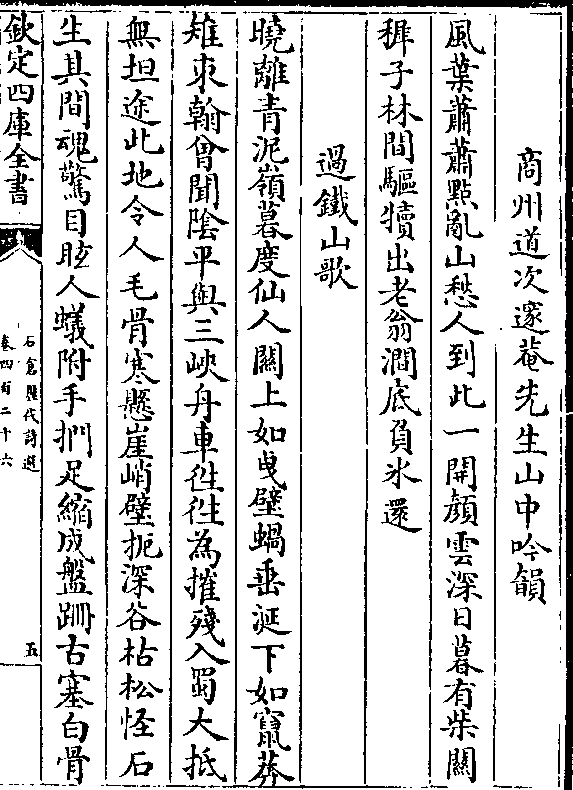 商州道次邃菴先生山中吟韻
風葉蕭蕭點亂山愁人到此一開顏雲深日暮有柴關
稺子林間驅犢出老翁澗底負氷還
過鐵山歌
曉離青泥嶺暮度仙人關上如曳壁蝸垂涎下如竄莽
雉束翰曾聞陰平與三峽舟車徃徃為摧殘入蜀大抵
無坦途此地令人毛骨寒懸崖峭壁扼深谷枯松怪石
生其間魂驚目眩人蟻附手捫足縮成盤跚古塞白骨
欽定四庫全書
石倉歷代詩選
卷四百二十六
五